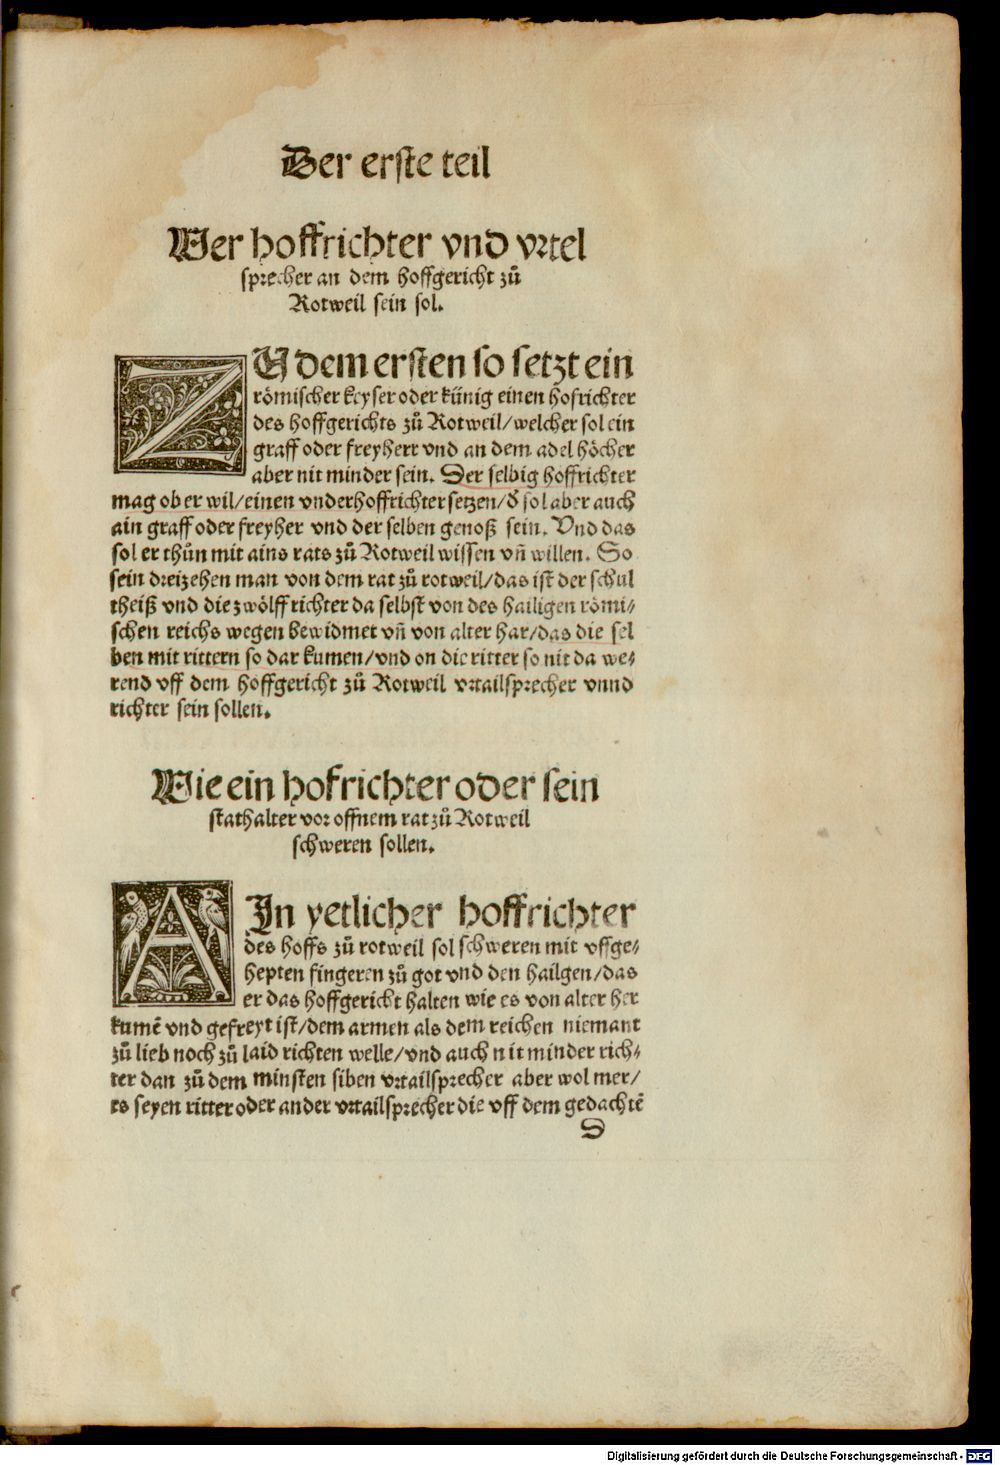 Der erste teil
Wer hoffrichter vnd vrtel
sprecher an dem hoffgericht zů
Rotweil sein sol.
ZU dem ersten so setzt ein
römischer keyser oder künig einen hofrichter
des hoffgerichts zů Rotweil/welcher sol ein
graff oder freyherr vnd an dem adel höcher
aber nit minder sein. Der selbig hoffrichter
mag ob er wil/einen vnderhoffrichter setzen/d̕ sol aber auch
ain graff oder freyher vnd der selben genoß sein. Vnd das
sol er thůn mit ains rats zů Rotweil wissen vn̄ willen. So
sein dreizehen man von dem rat zů rotweil/das ist der schul
theiß vnd die zwölff richter da selbst von des hailigen römi⸗
schen reichs wegen bewidmet vn̄ von alter har/das die sel
ben mit rittern so dar kumen/vnd on die ritter so nit da we⸗
rend vff dem hoffgericht zů Rotweil vrtailsprecher vnnd
richter sein sollen.
Wie ein hofrichter oder sein
stathalter vor offnem rat zů Rotweil
schweren sollen.
AIn yetlicher hoffrichter
des hoffs zů rotweil sol schweren mit vffge⸗
hepten fingeren zů got vnd den hailgen/das
er das hoffgericht halten wie es von alter her
kumē vnd gefreyt ist/dem armen als dem reichen niemant
zů lieb noch zů laid richten welle/vnd auch nit minder rich⸗
ter dan zů dem minsten siben vrtailsprecher aber wol mer/
es seyen ritter oder ander vrtailsprecher die vff dem gedachtē
D
Digitalisierung gefördert durch die Deutsche Forschungsgemeinschaft - DFG